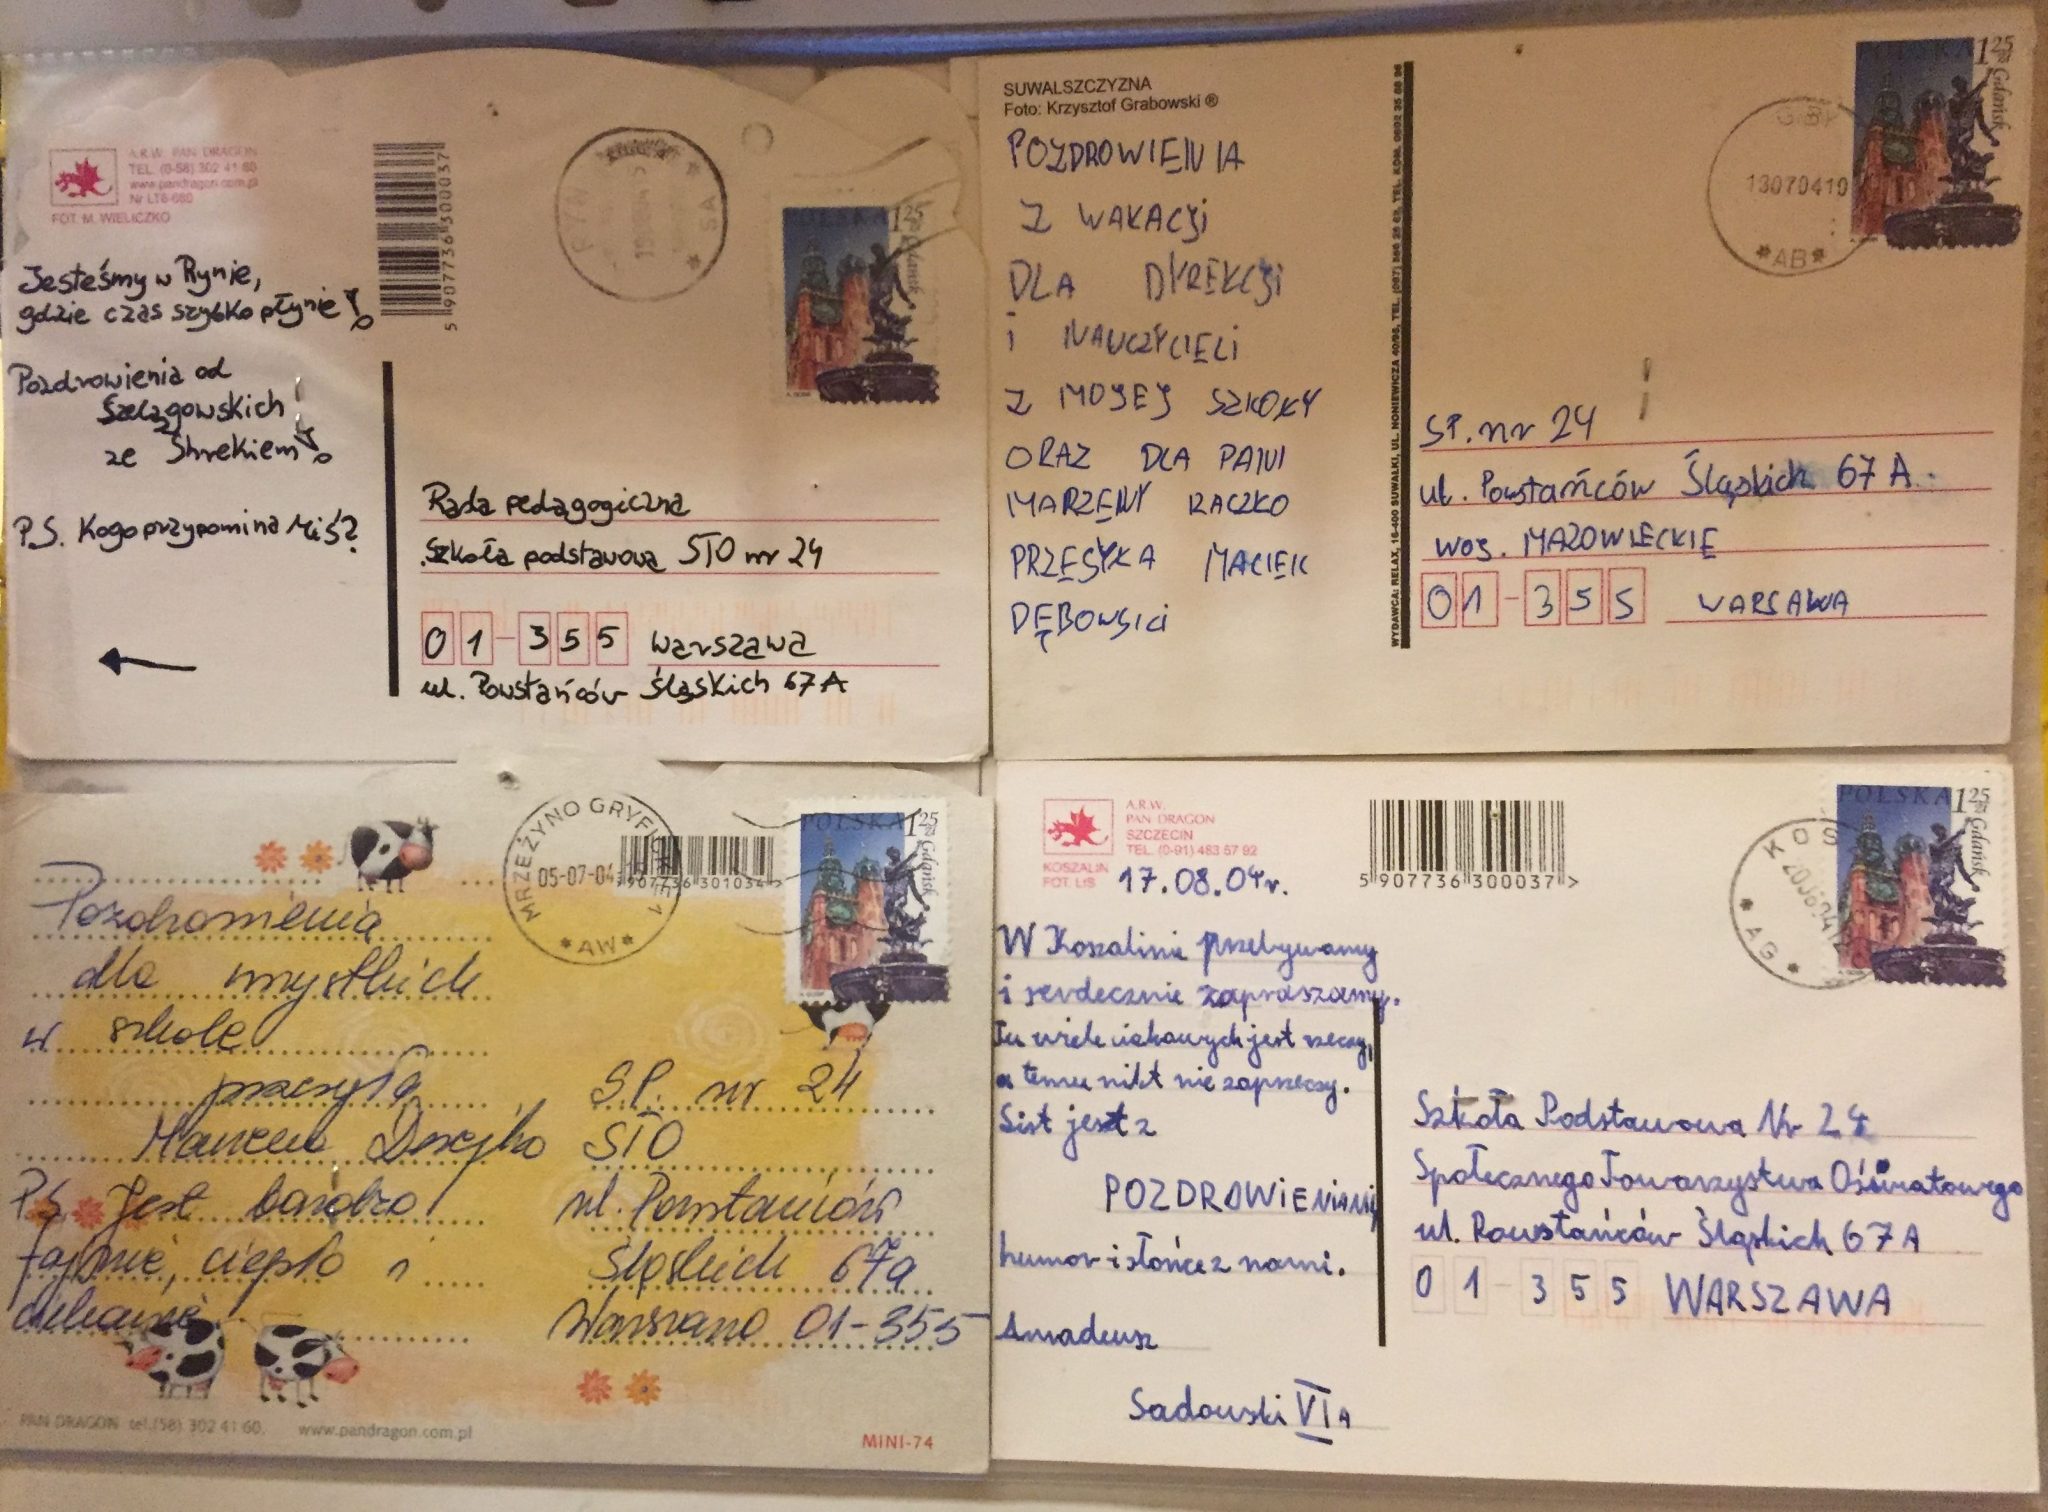 A.R.W. PAN DRAGON
TEL. (0-58) 302 41 60
www.pandragon.com.pl
Nr LT8-680
FOT. M. WIELICZKO
5 907736 300037
SA
POLSKA 1,25 zł
Gdańsk
Jesteśmy w Rynie,
gdzie czas szybko płynie!
Pozdrowienia od
Szelągowskich
ze Shrekiem!
P.S. Kogo przypomina Miś?
Rada pedagogiczna
Szkoła podstawowa STO nr 24
01-355 Warszawa
ul. Powstańców Śląskich 67A
SUWALSZCZYZNA
Foto: Krzysztof Grabowski ®
POZDROWIENIA
Z WAKACJI
DLA DYREKCJI
i NAUCZYCIELI
Z MOJEJ SZKOŁY
ORAZ DLA PANI
MARZENY RACZKO
PRZESYŁA MACIEK
DĘBOWSKI
WYDAWCA: RELAX, 16-400 SUWAŁKI, UL. NONIEWICZA
GIBY
13070410
*AB*
POLSKA 1,25 zł
Gdańsk
SP. nr 24
ul. Powstańców Śląskich 67A
woj. MAZOWIECKIE
01-355 WARSAWA
MRZEŻYNO GRYFICKIE 1
05-07-04
*AW*
907736 301034 >
POLSKA 1,25 zł
Gdańsk
Pozdrowienia
dla wszystkich
w szkole
przesyła
P.S. Jest bardzo
fajnie, ciepło i
ciekawie
S.P. nr 24
STO
ul. Powstańców
Śląskich 67a
Warszawa 01-355
PAN DRAGON tel.(58) 302 41 60, www.pandragon.com.pl
MINI-74
A.R.W.
PAN DRAGON
SZCZECIN
TEL. (0-91) 483 57 92
KOSZALIN
FOT. LIS
17.08.04r.
5 907736 300037 >
KOS
* AG *
POLSKA 1,25 zł
Gdańsk
W Koszalinie przebywamy
i serdecznie zapraszamy.
Tu wiele ciekawych jest rzeczy,
a temu nikt nie zaprzeczy.
List jest z
POZDROWIENIAMI,
humor i słońce z nami.
Amadeusz
Sadowski VI A
Szkoła Podstawowa Nr 24
Społecznego Towarzystwa Oświatowego
ul. Powstańców Śląskich 67A
01-355 WARSZAWA